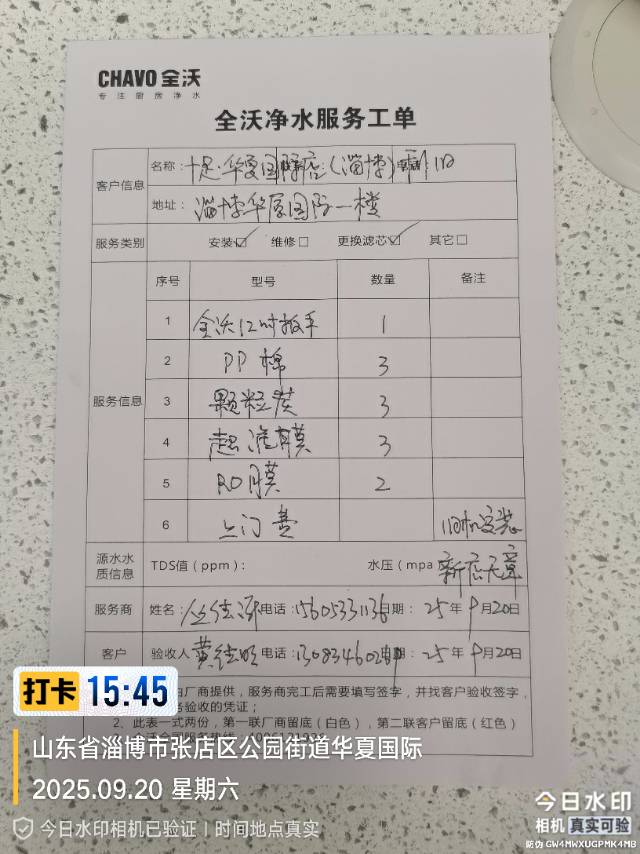 CHAVO 全沃
专注厨房净水
全沃净水服务工单
客户信息
名称： 十足·华夏国际店（淄博）
地址： 淄博华夏国际一楼
服务类别 安装☑ 维修□ 更换滤芯☑ 其它□
服务信息
序号 型号 数量 备注
1 全沃12吋扳手 1
2 PP棉 3
3 颗粒炭 3
4 超滤膜 3
5 RO膜 2
6 上门费 旧机安装
源水水质信息 TDS值（ppm）： 水压（mpa 新店无章
服务商 姓名： 电话：15605331136 日期：25年9月20日
客户 验收人 黄 电话：期：25年9月20日
由厂商提供，服务商完工后需要填写签字，并找客户验收签字，
验收的凭证；
2、此表一式两份，第一联厂商留底（白色），第二联客户留底（红色）
打卡 15:45
山东省淄博市张店区公园街道华夏国际
2025.09.20 星期六
今日水印相机已验证 | 时间地点真实
今日水印
相机 真实可验
防伪 GW4MWXUGPMK4MB